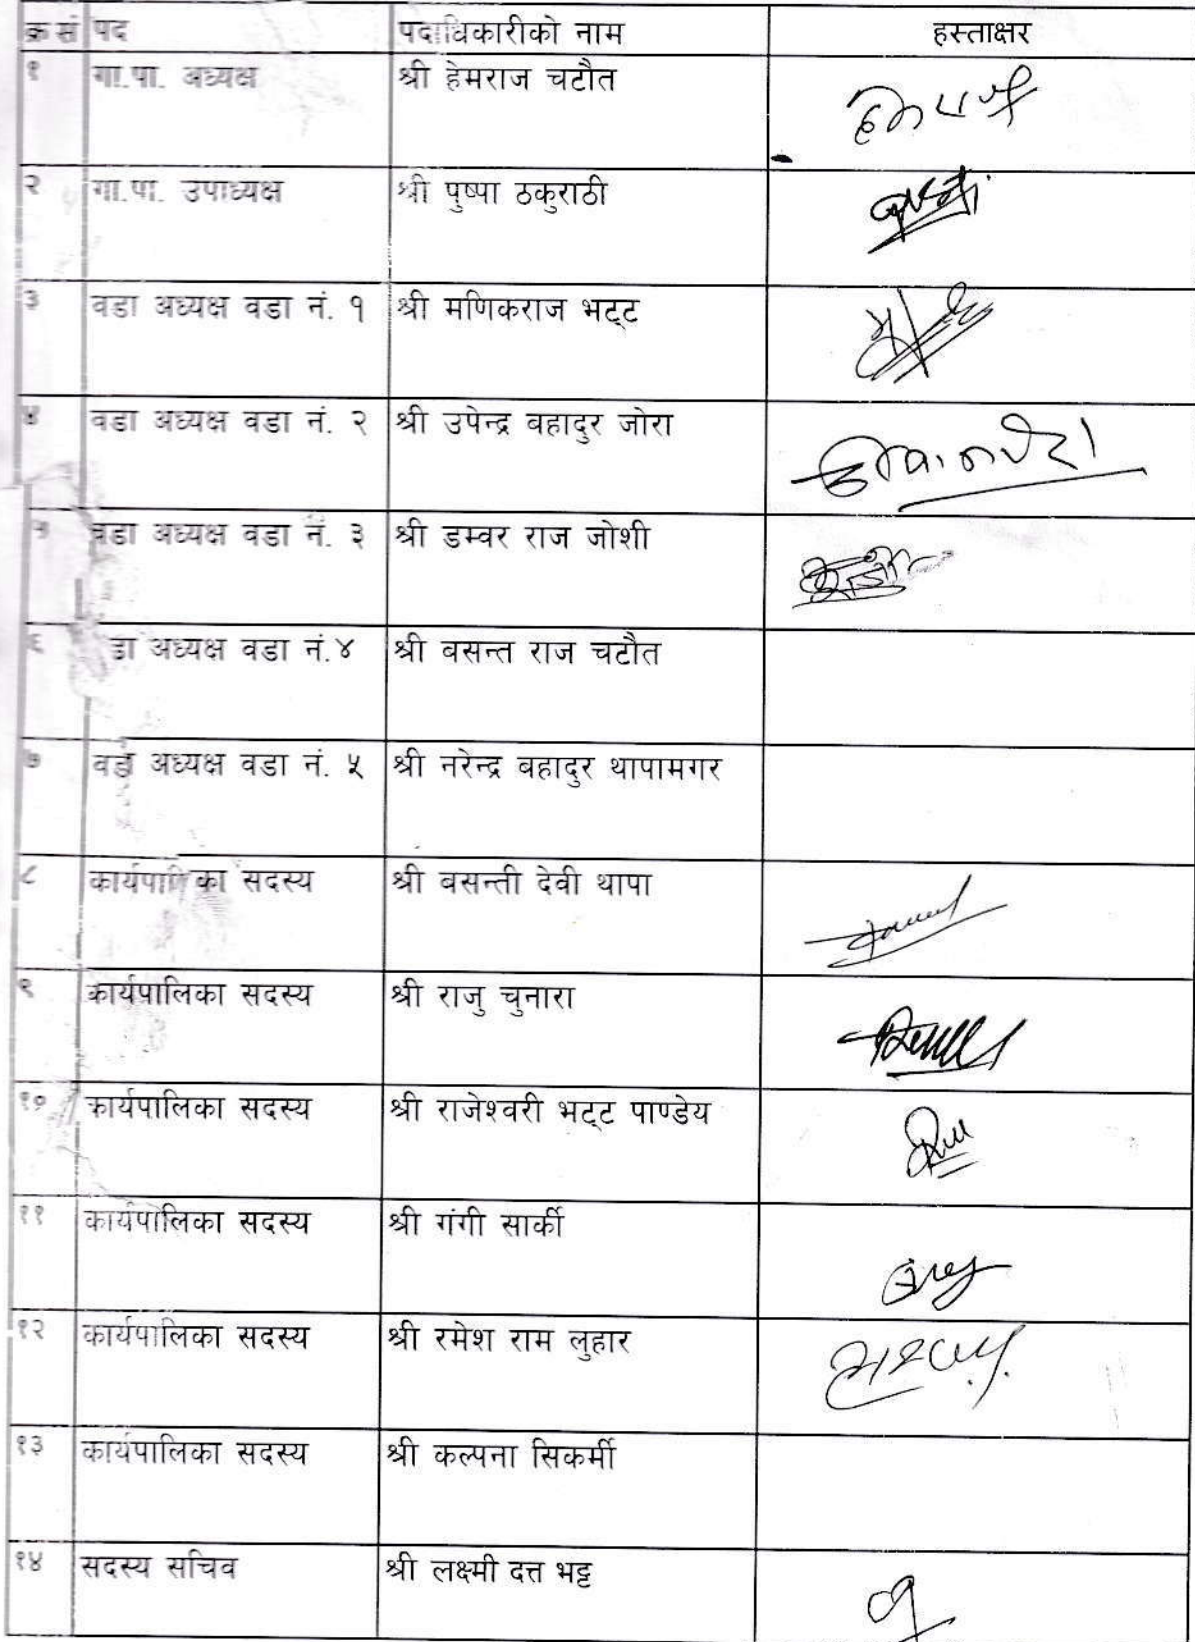 क्र सं पद पदाधिकारीको नाम हस्ताक्षर
१ गा.पा. अध्यक्ष श्री हेमराज चटौत
२ गा.पा. उपाध्यक्ष श्री पुष्पा ठकुराठी
३ वडा अध्यक्ष वडा नं. १ श्री मणिकराज भट्ट
४ वडा अध्यक्ष वडा नं. २ श्री उपेन्द्र बहादुर जोरा
५ वडा अध्यक्ष वडा नं. ३ श्री डम्वर राज जोशी
६ डा अध्यक्ष वडा नं.४ श्री बसन्त राज चटौत
७ वडा अध्यक्ष वडा नं. ५ श्री नरेन्द्र बहादुर थापामगर
८ कार्यपालिका सदस्य श्री बसन्ती देवी थापा
९ कार्यपालिका सदस्य श्री राजु चुनारा
१० कार्यपालिका सदस्य श्री राजेश्वरी भट्ट पाण्डेय
११ कार्यपालिका सदस्य श्री गंगी सार्की
१२ कार्यपालिका सदस्य श्री रमेश राम लुहार
१३ कार्यपालिका सदस्य श्री कल्पना सिकर्मी
१४ सदस्य सचिव श्री लक्ष्मी दत्त भट्ट